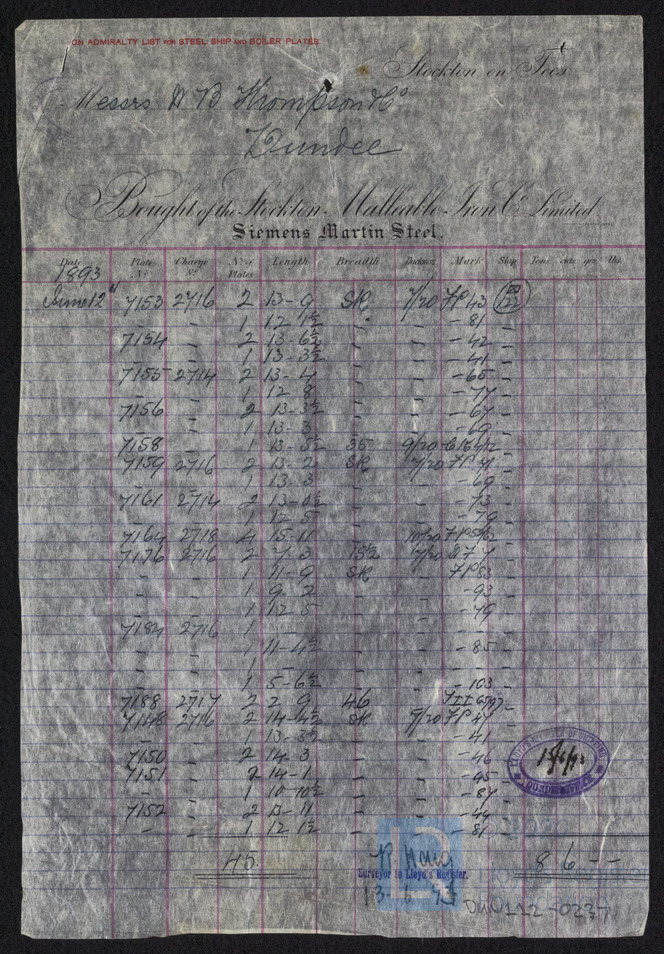 ON ADMIRALTY LIST FOR STEEL SHIP AND BOILER PLATES.
Stockton on Tees
Messrs W B Thompson & Co
Dundee
Bought of the Stockton Malleable Iron Co Limited
Siemens Martin Steel.
Date Plate No Charge No No of Plates Length Breadth Thickness Mark Ship Tons cwts qrs lbs.
1893
June 12th 7153 2716 2 13-9 SK 7/20 FP 43
- - 1 12 1½ - - - 81 -
7154 - 2 13-6½ - - - 42 -
- - 1 13-3½ - - - 41 -
7155 2714 2 13-4 - - - 65 -
- - 1 12 8 - - - 77 -
7156 - 2 13-3½ - - - 67 -
- - 1 13-3 - - - 69 -
7158 - 1 13-5½ 35 9/20
7159 2716 2 13-2 SK 7/20 FP 41 -
- - 1 13 3 - - - 69 -
7161 2714 2 13-0½ - - - 73 -
- - 1 12 5 - - - 79 -
7164 2718 4 15-11 - 10/20 FP
7176 2716 2 7 3 15½ 7/20
- - 1 11-9 SK - FP 83 -
- - 1 9-2 - - - 93 -
- - 1 12-5 - - - 79 -
7184 2716 1 - - - -
- - 1 11-4½ - - - 85 -
- - 1 - - - -
- - 1 5-6½ - - - 103 -
7188 2717 2 2 9 46
7148 2716 2 14-4½ SK 7/20 FP 47 -
- - 1 13-3½ - - - 41 -
7150 - 2 14-3 - - - 46 -
7151 - 2 14-1 - - - 45 -
- - 1 10-10½ - - - 87 -
7152 - 2 13-11 - - - 44 -
- - 1 12 1½ - - - 81 -
45 8 6 - -
Surveyor to Lloyd's Register.
13-6-93